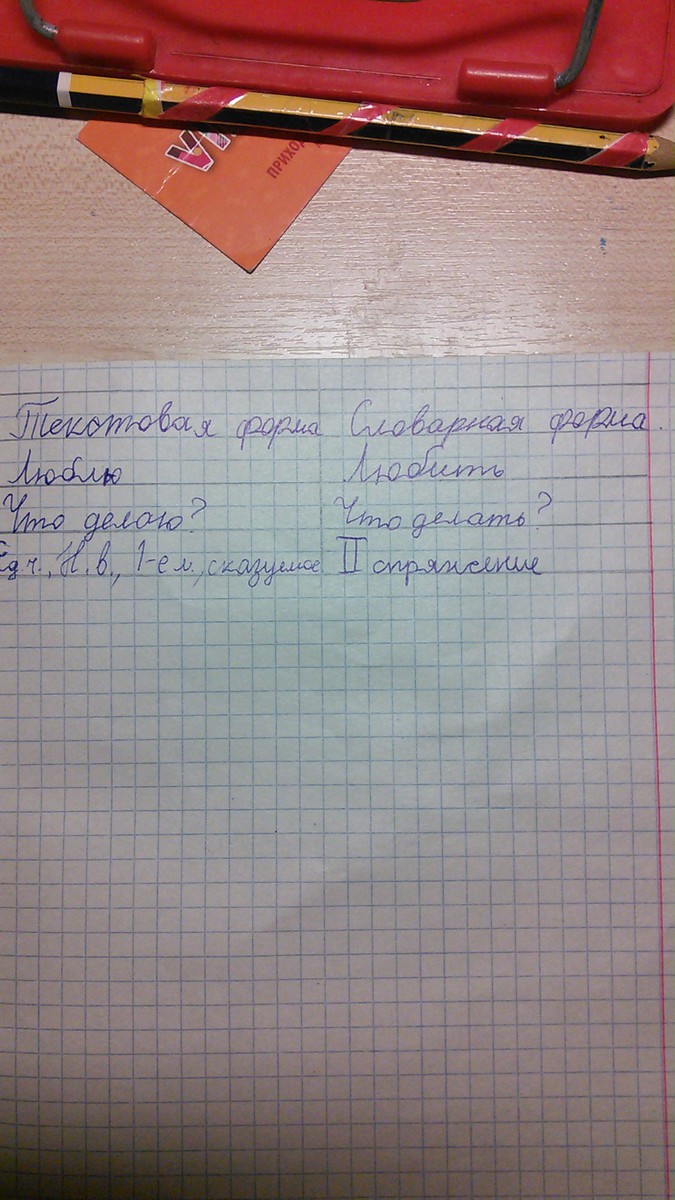 VI
ПРИХОД
Текстовая форма Словарная форма.
Люблю Любить
Что делаю? Что делать?
Ед ч., Н.в., 1-е л., сказуемое II спряжение